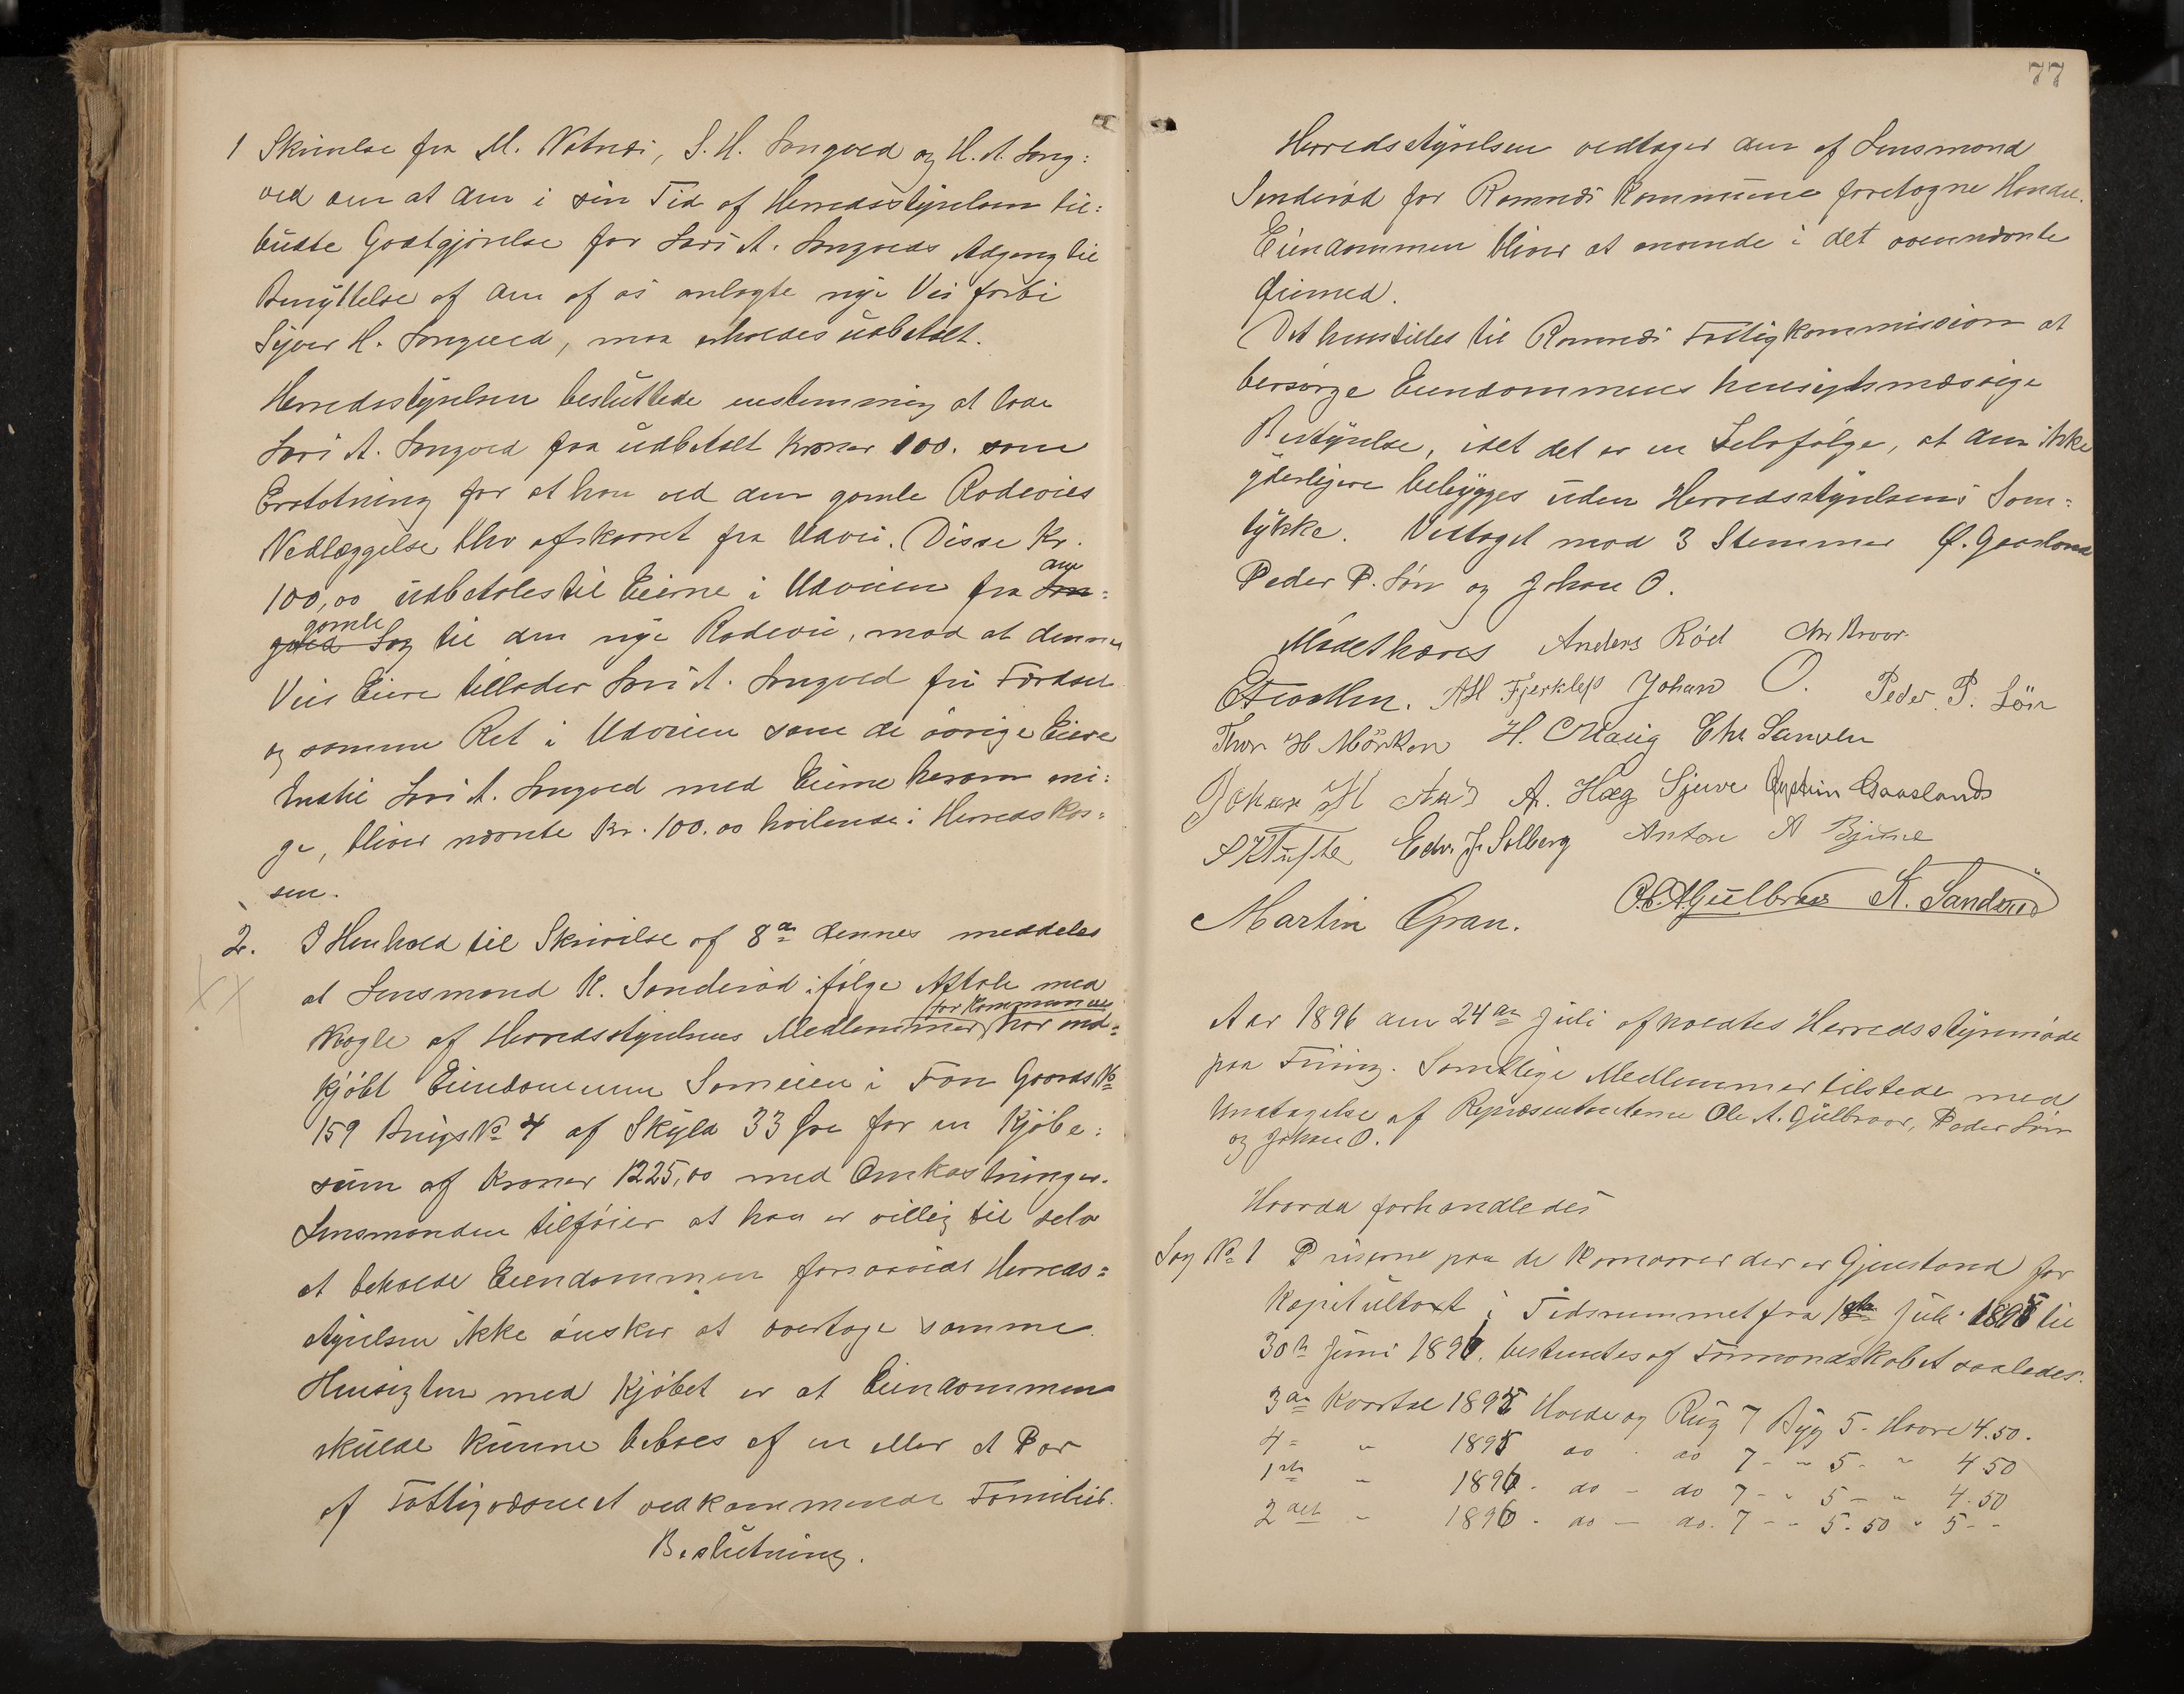 1 Skrivelse fra M. Natnæs, S. H. Songved og H. A. Song:
ved om at den i sin Tid af Herredsstyrelsen til:
budte Godtgjørelse for Lars A. Songveds Adgang til
Benyttelse af den af os anlagte nye Vei forbi
Syver H. Songved, maa erholdes udbetalt.
Herredsstyrelsen besluttede enstemmig at lade
Lars A. Songved faa udbetalt Kroner 100. som
Erstatning for at han ved den gamle Rodeveis
Nedlæggelse blev afskaaret fra Udvei. Disse Kr.
100,00 udbetales til Eierne i Udveien fra den Son:
gamle
gved Sag til den nye Rodevei, mod at denne
Veis Eiere tillader Lars A. Songved fri Færdsel
og samme Ret i Udveien som de øvrige Eiere
Indtil Lars A. Songved med Eierne herom eni:
ge, bliver nævnte Kr. 100.00 hvilende i Herredskas:
sen.
2. I Henhold til Skrivelse af 8de dennes meddeles
at Lensmand K. Sanderød ifølge Aftale med
for Kommunen
Nogle af Herredsstyrelsens Medlemmer har ind:
kjøbt Eiendommen Sameien i Fon Gaards No
159 Brugs No 4 af Skyld 33 Øre for en Kjøbe:
sum af Kroner 1225,00 med Omkostninger.
Lensmanden tilføier at han er villig til selv
at beholde Eiendommen forsaavidt Herreds:
styrelsen ikke ønsker at overtage samme.
Hensigten med Kjøbet er at Eiendommen
skulde kunne beboes af en eller et Par
af Fattigvæsenet vedkommende Familier.
Beslutning.
77
Herredsstyrelsen vedtager den af Lensmand
Sanderød for Ramnæs Kommune foretagne Handel.
Eiendommen bliver at anvende i det ovennævnte
Øiemed.
Det henstilles til Ramnæs Fattigkommission at
besørge Eiendommens hensigtsmæssige
Bestyrelse, idet det er en Selvfølge, at den ikke
yderligere bebygges uden Herredsstyrelsens Sam:
tykke. Vedtaget mod 3 Stemmer Ø. Gaasland
Peder P. Løn og Johan O.
Mødet hæves Anders Rød Chr Kroer.
A H Fjerklep Johan O. Peder P. Løn
Thor H Mörken H. C Haug Chr Sanden
Johan M A. Hæg Sjuve Øystein Gaaslands
S K Tufte Edv. J. Solberg Anton A Bjune
Martin Gran. O. A. Gulbraar K. Sanderød
Aar 1896 den 24de Juli afholdtes Herredsstyremøde
paa Fining. Samtlige Medlemmer tilstede med
Undtagelse af Repræsentanterne Ole A. Gulbraar, Peder Løn
og Johan O.
Hvorda forhandledes
Sag No 1 Priserne paa de Kornvarer der er Gjenstand for
Kapitultaxt i Tidsrummet fra 1ste Juli 1895 til
30te Juni 1896. bestemtes af Formandskabet saaledes.
3de Kvartal 1895 Hvede og Rug 7 Byg 5 - Havre 4.50.
4 - " 1895 do - do 7 - " 5 - " 4 50
1ste " 1896 - do - do 7 - " 5 - " 4.50
2det " 1896 - do - do. 7 - - 5.50 " 5 - -